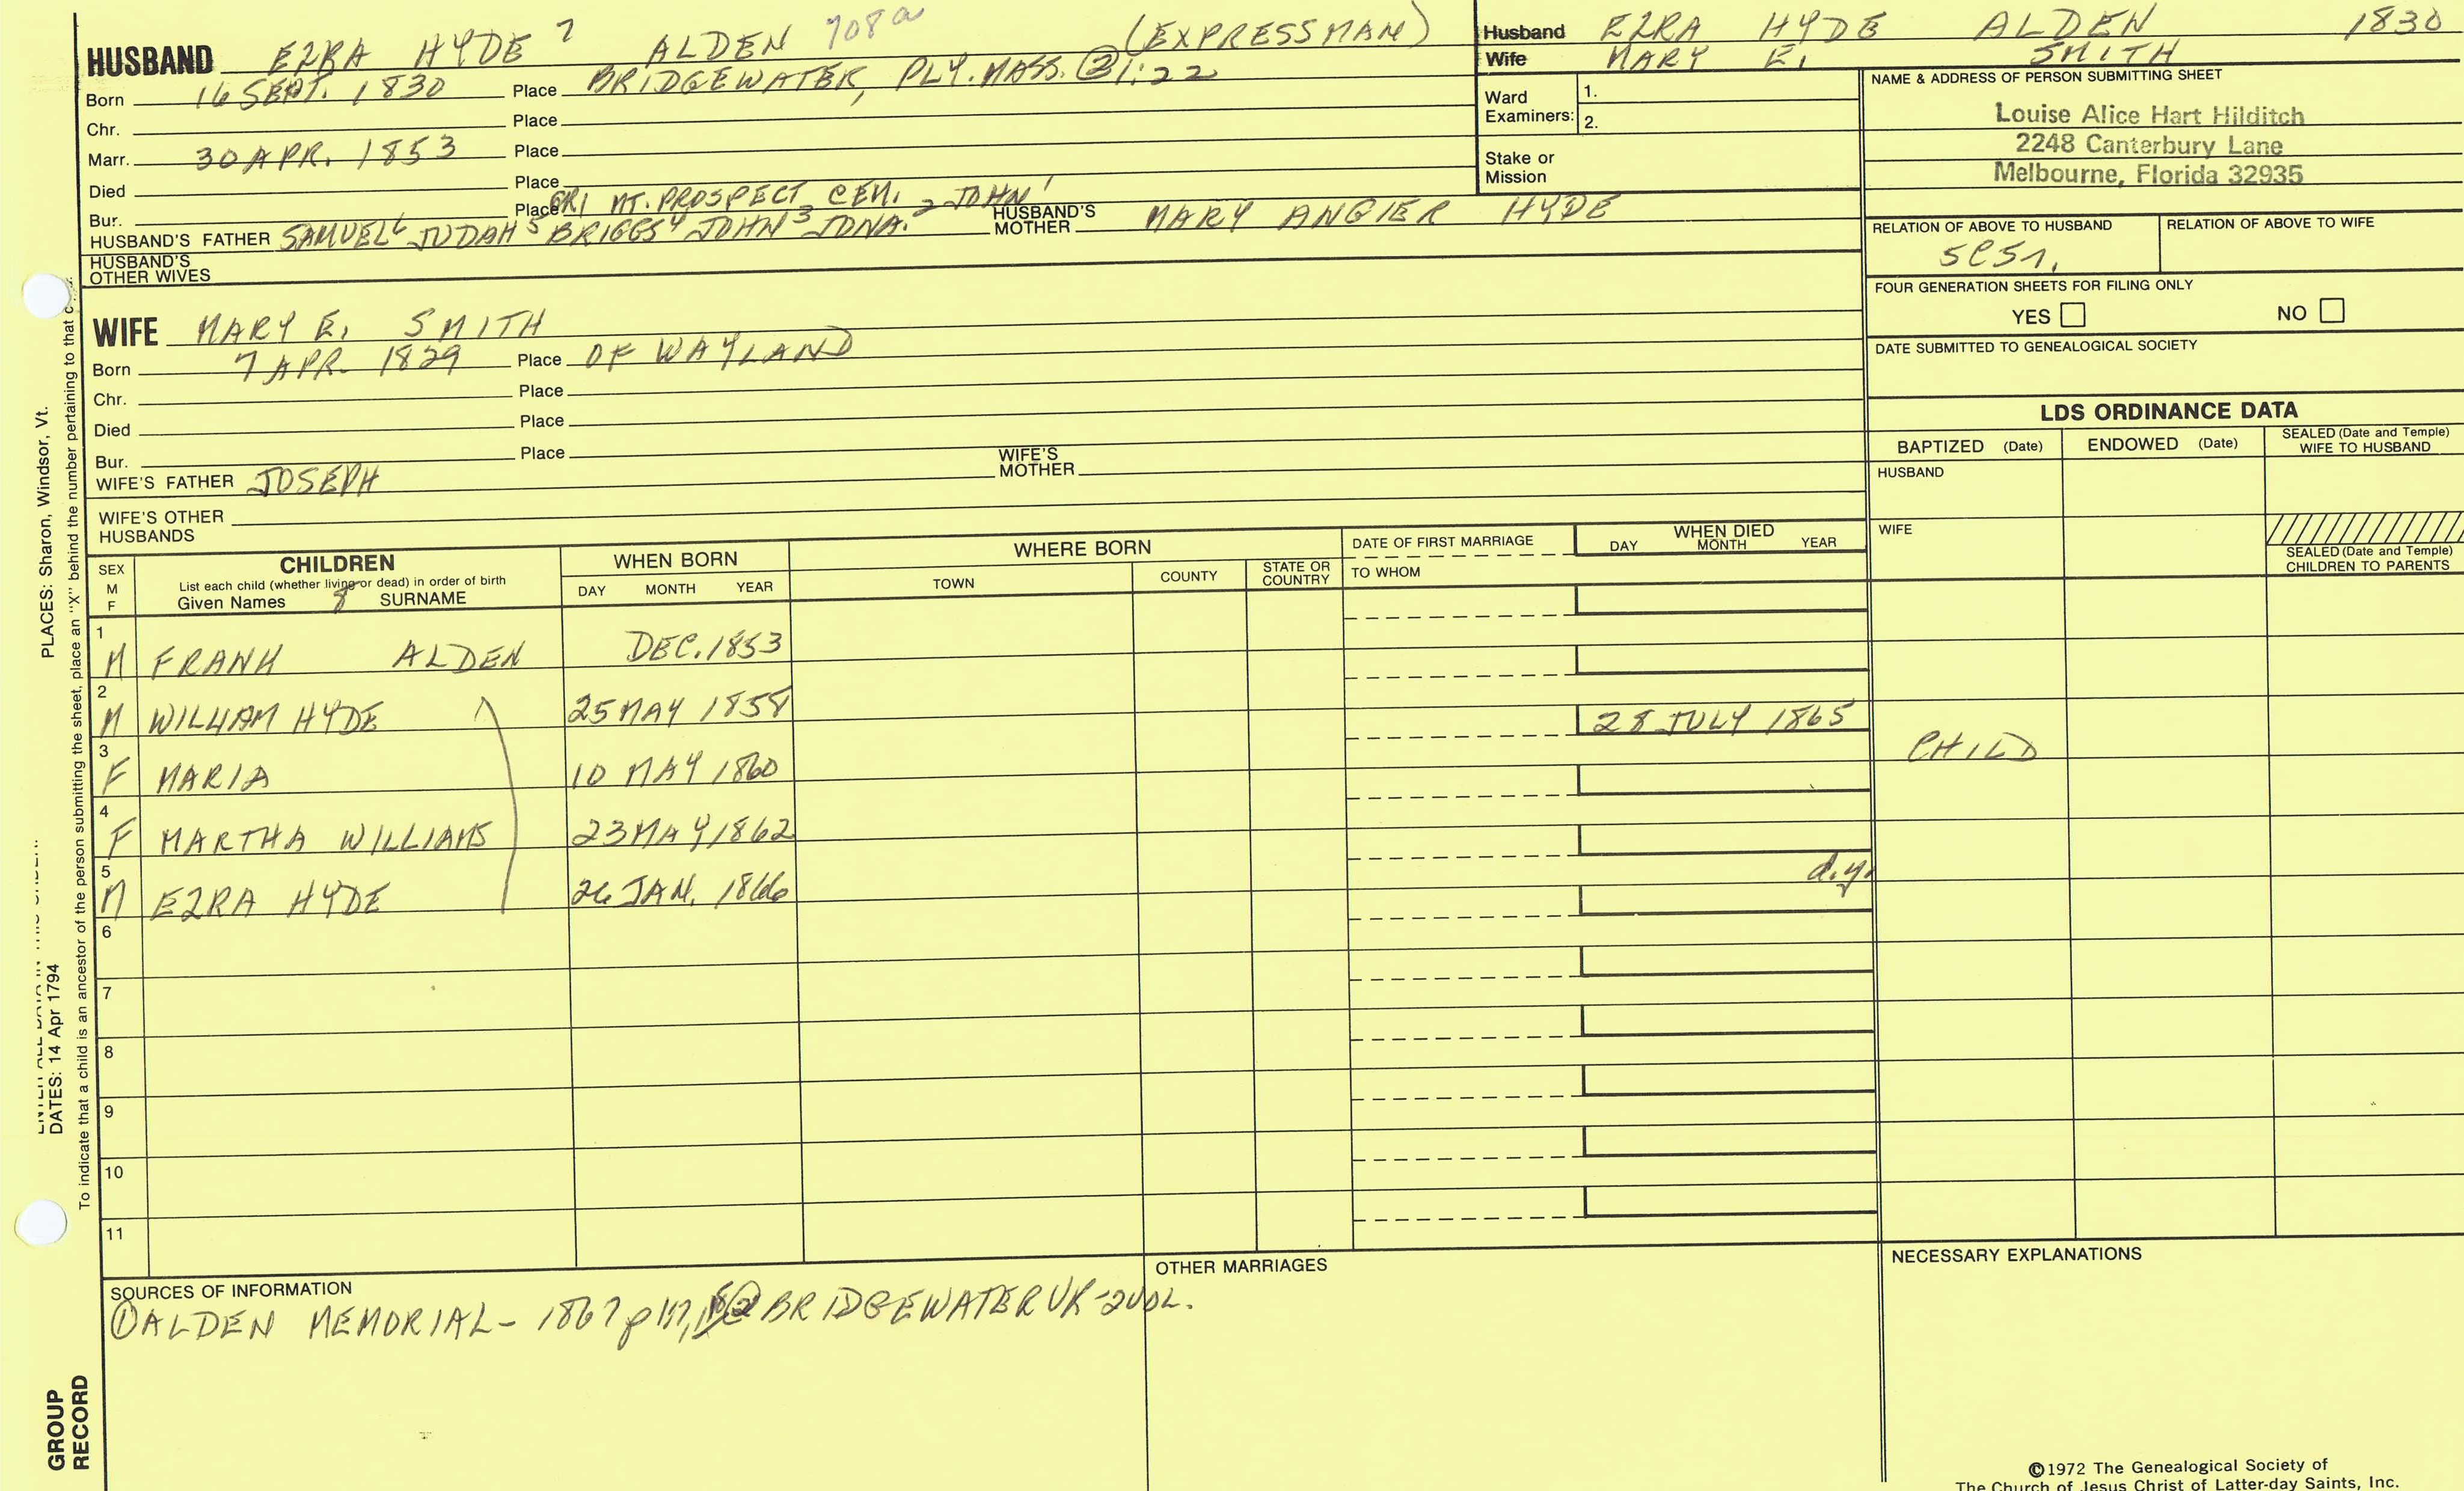 HUSBAND EZRA HYDE 7 ALDEN 708a (EXPRESSMAN)
Born 16 SEPT. 1830 Place BRIDGEWATER, PLY. MASS. ② 1:22
Chr. Place
Marr. 30 APR. 1853 Place
Died Place
Bur. Place GR1 MT. PROSPECT CEM.
HUSBAND'S FATHER SAMUEL 6 JUDAH 5 BRIGGS 4 JOHN 3 JONA. 2 JOHN 1 HUSBAND'S MOTHER MARY ANGIER HYDE
HUSBAND'S OTHER WIVES
Husband EZRA HYDE ALDEN 1830
Wife MARY E. SMITH
Ward Examiners: 1.
2.
Stake or Mission
NAME & ADDRESS OF PERSON SUBMITTING SHEET
Louise Alice Hart Hilditch
2248 Canterbury Lane
Melbourne, Florida 32935
RELATION OF ABOVE TO HUSBAND RELATION OF ABOVE TO WIFE
5C5r.
FOUR GENERATION SHEETS FOR FILING ONLY
YES NO
DATE SUBMITTED TO GENEALOGICAL SOCIETY
WIFE MARY E. SMITH
Born 7 APR. 1829 Place OF WAYLAND
Chr. Place
Died Place
Bur. Place
WIFE'S FATHER JOSEPH WIFE'S MOTHER
WIFE'S OTHER HUSBANDS
LDS ORDINANCE DATA
BAPTIZED (Date) ENDOWED (Date) SEALED (Date and Temple) WIFE TO HUSBAND
HUSBAND
WIFE
SEALED (Date and Temple) CHILDREN TO PARENTS
SEX M F CHILDREN WHEN BORN WHERE BORN DATE OF FIRST MARRIAGE WHEN DIED
List each child (whether living or dead) in order of birth
Given Names 8 SURNAME DAY MONTH YEAR TOWN COUNTY STATE OR COUNTRY TO WHOM DAY MONTH YEAR
1 M FRANK ALDEN DEC. 1853
2 M WILLIAM HYDE 25 MAY 1858 28 JULY 1865 CHILD
3 F MARIA 10 MAY 1860
4 F MARTHA WILLIAMS 23 MAY 1862
5 M EZRA HYDE 26 JAN. 1866 d.y.
6
7
8
9
10
11
SOURCES OF INFORMATION
① ALDEN MEMORIAL - 1867 p 117, ② BRIDGEWATER VR - 2 VOL.
OTHER MARRIAGES
NECESSARY EXPLANATIONS
PLACES: Sharon, Windsor, Vt.
DATES: 14 Apr 1794
To indicate that a child is an ancestor of the person submitting the sheet, place an "X" behind the number pertaining to that
GROUP
RECORD
©1972 The Genealogical Society of
The Church of Jesus Christ of Latter-day Saints, Inc.